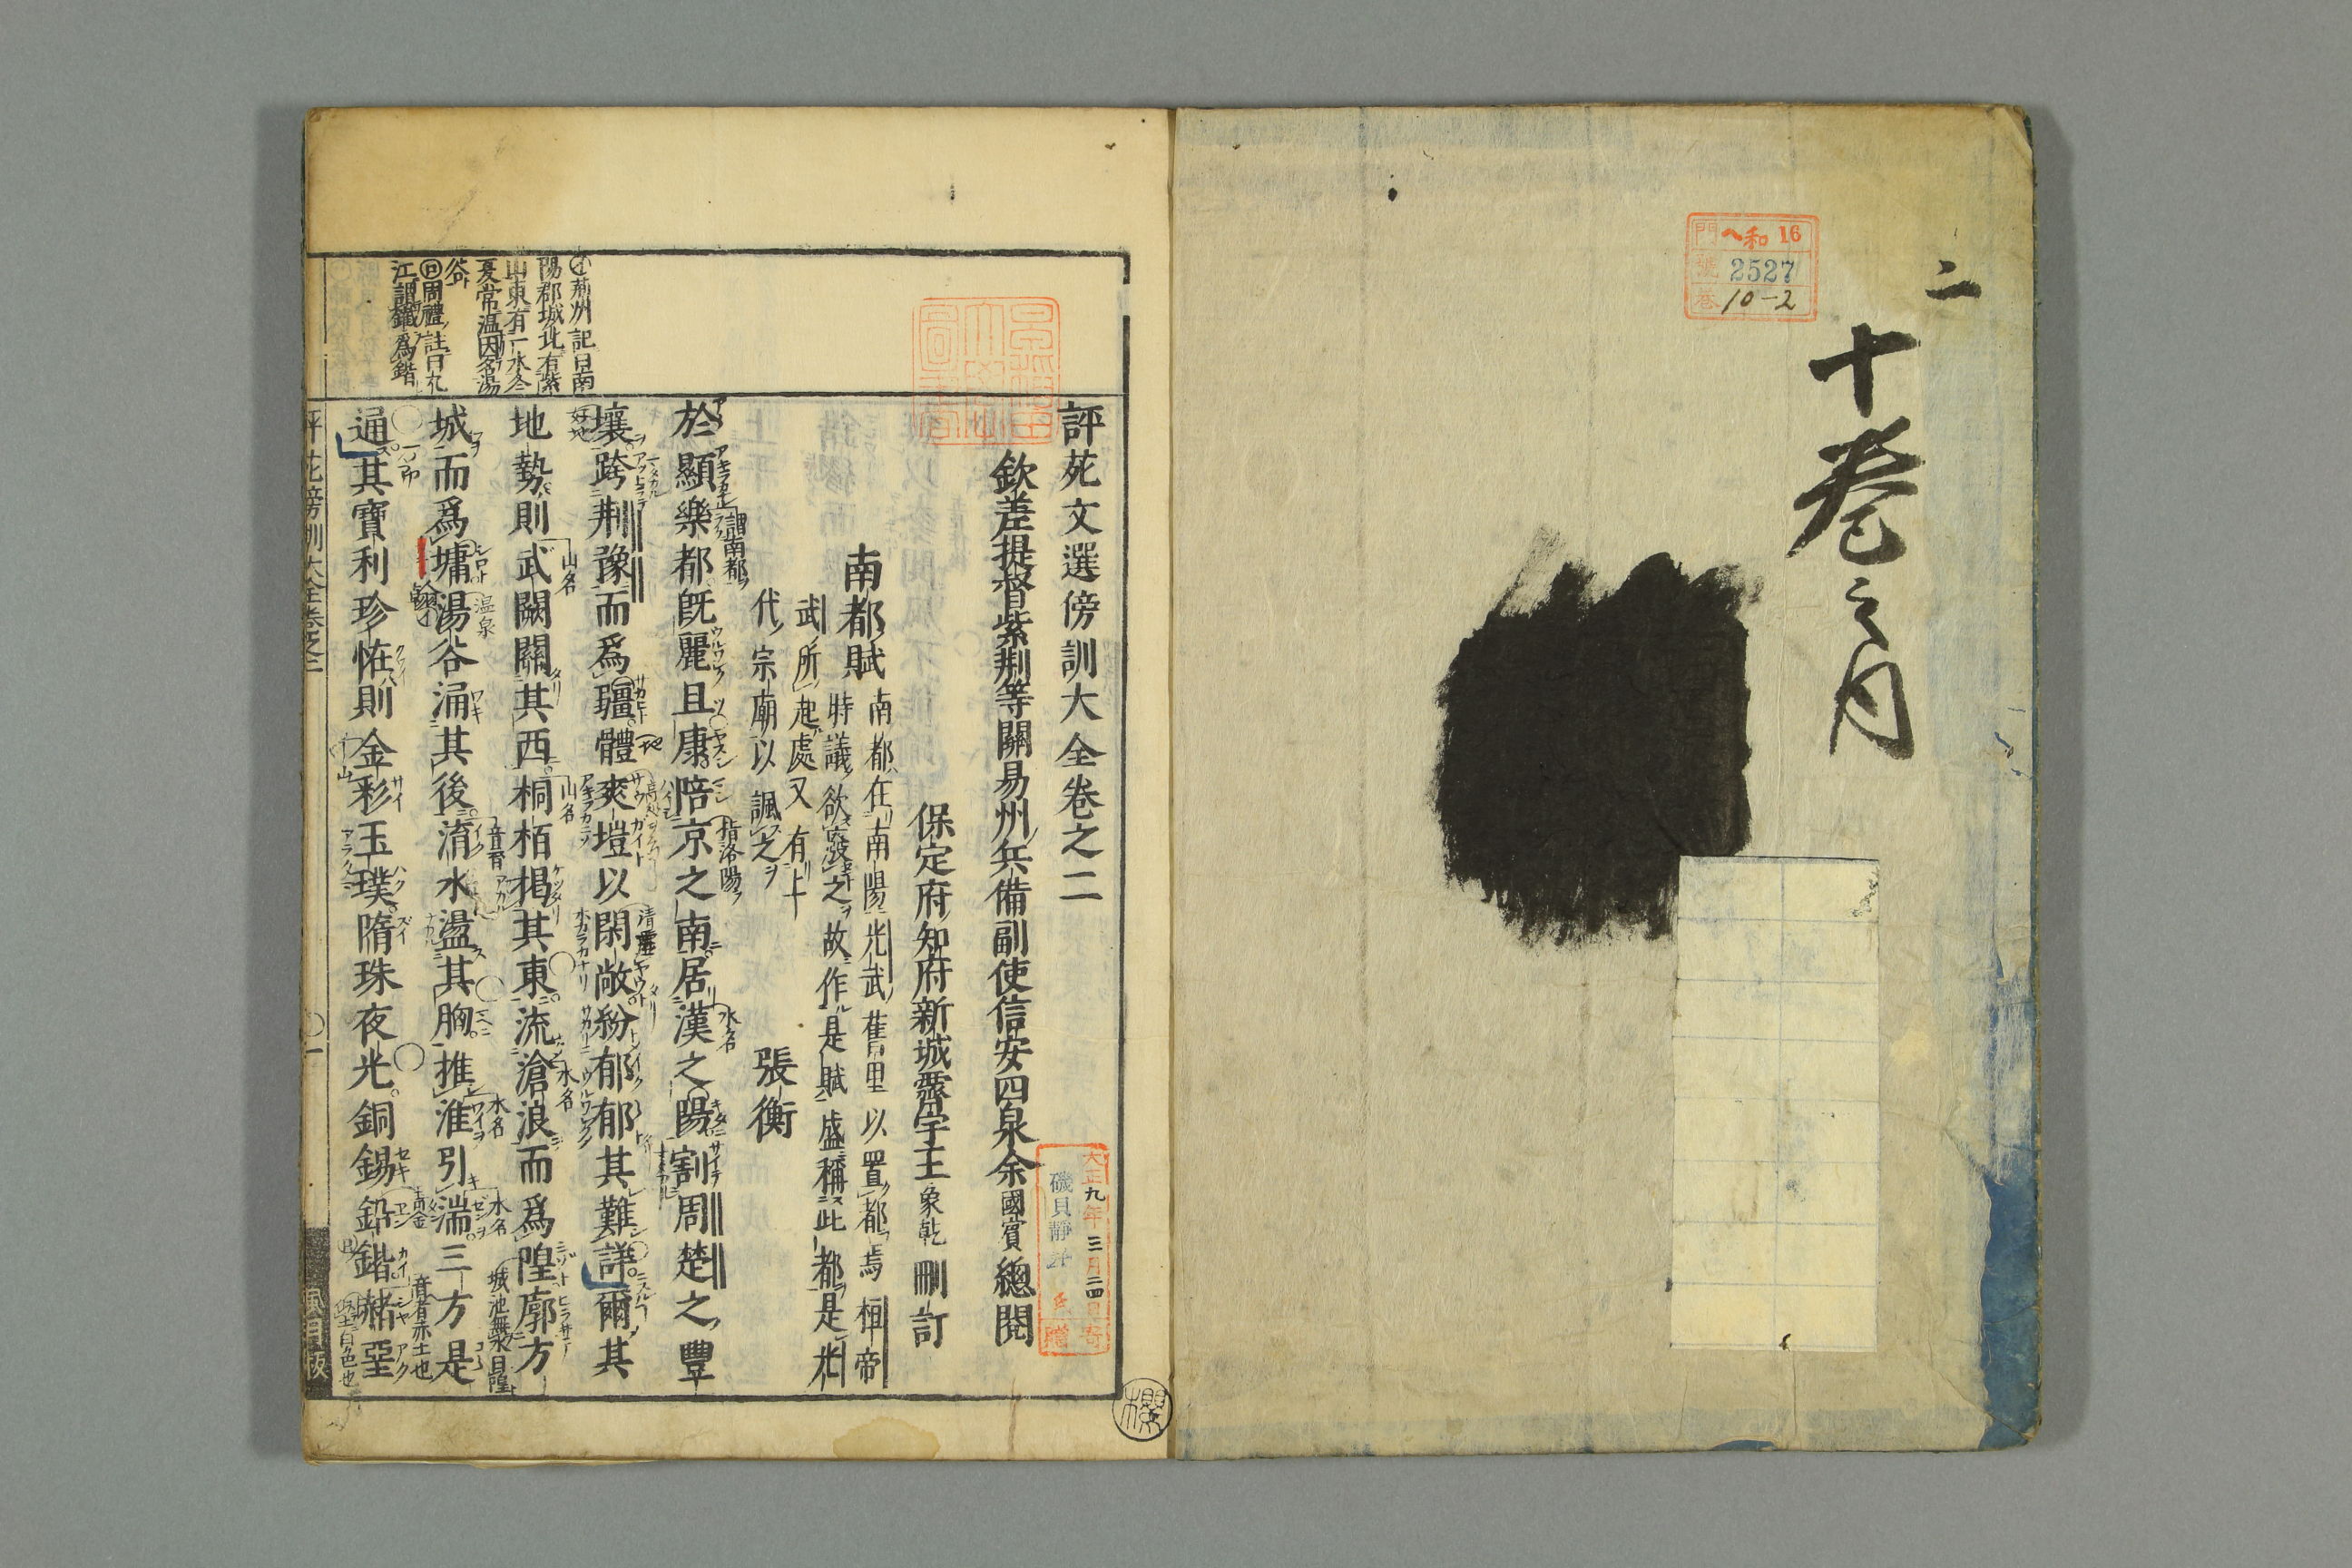 二
十巻之内
門 ヘ和 16
號 2527
巻 10-2
評苑文選傍訓大全卷之二
欽差提督紫荆等關易州兵備副使信安四泉余國賓總閱
保定府知府新城霽宇王象乾刪訂
大正九年三月二四日寄
磯貝靜
氏贈
南都賦
南都在南陽光武舊里以置都焉桓帝
時議欲廢之故作是賦盛稱此都是光
武所起處又有上
代宗廟以諷之
張衡
於顯樂都旣麗且康陪京之南居漢之陽割周楚之豐
壤跨荆豫而爲疆體爽塏以閑敞紛郁郁其難詳爾其
地勢則武闕關其西桐栢揭其東流滄浪而爲隍廓方
城而爲墉湯谷涌其後淯水盪其胸推淮引湍三方是
通其寶利珍恠則金彩玉璞隋珠夜光銅錫鉛鍇赭堊
謂南都
指洛陽
水名
好地
山名
山名
水名
城池無水曰隍
温泉
音育
水名
水名
音者赤土也
荊州記曰南
陽郡城北有紫
山東有一水冬
夏常温因名湯
谷
周禮註曰九
江謂鐵爲鍇
櫻